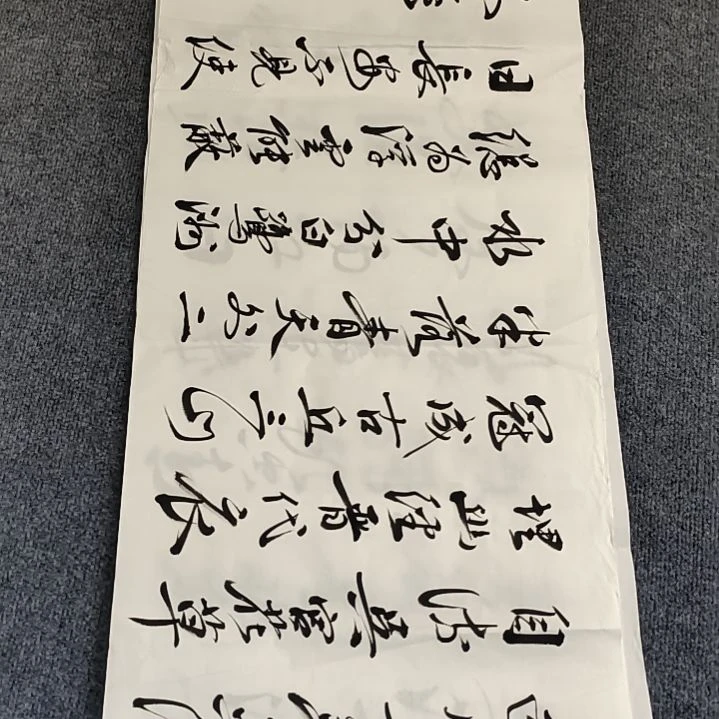 自流吴宫花草
埋幽徑晋代衣
冠成古丘三山
半落青天外二
水中分白鷺洲
總為浮雲能蔽
日長安不見使